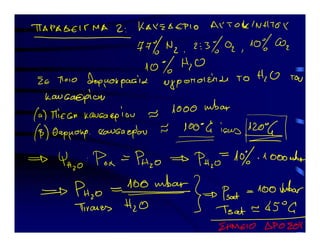 ΠΑΡΑΔΕΙΓΜΑ 2: ΚΑΥΣΑΕΡΙΟ ΑΥΤΟΚΙΝΗΤΟΥ
77% N₂, 2÷3% O₂, 10% CO₂
10% H₂O
Σε ποιο θερμοκρασία υγροποιείται το H₂O του
καυσαερίου
(α) Πίεση καυσαερίου ≈ 1000 mbar
(β) Θερμοκρ. καυσαερίου ≈ 100°C ίσως 120°C
⇒ Ψ H₂O : Pολ = P H₂O ⇒ P H₂O = 10% · 1000 mbar
⇒ P H₂O = 100 mbar ⇒ Psat = 100 mbar
Πίνακες H₂O Tsat ≈ 45°C
ΣΗΜΕΙΟ ΔΡΟΣΟΥ